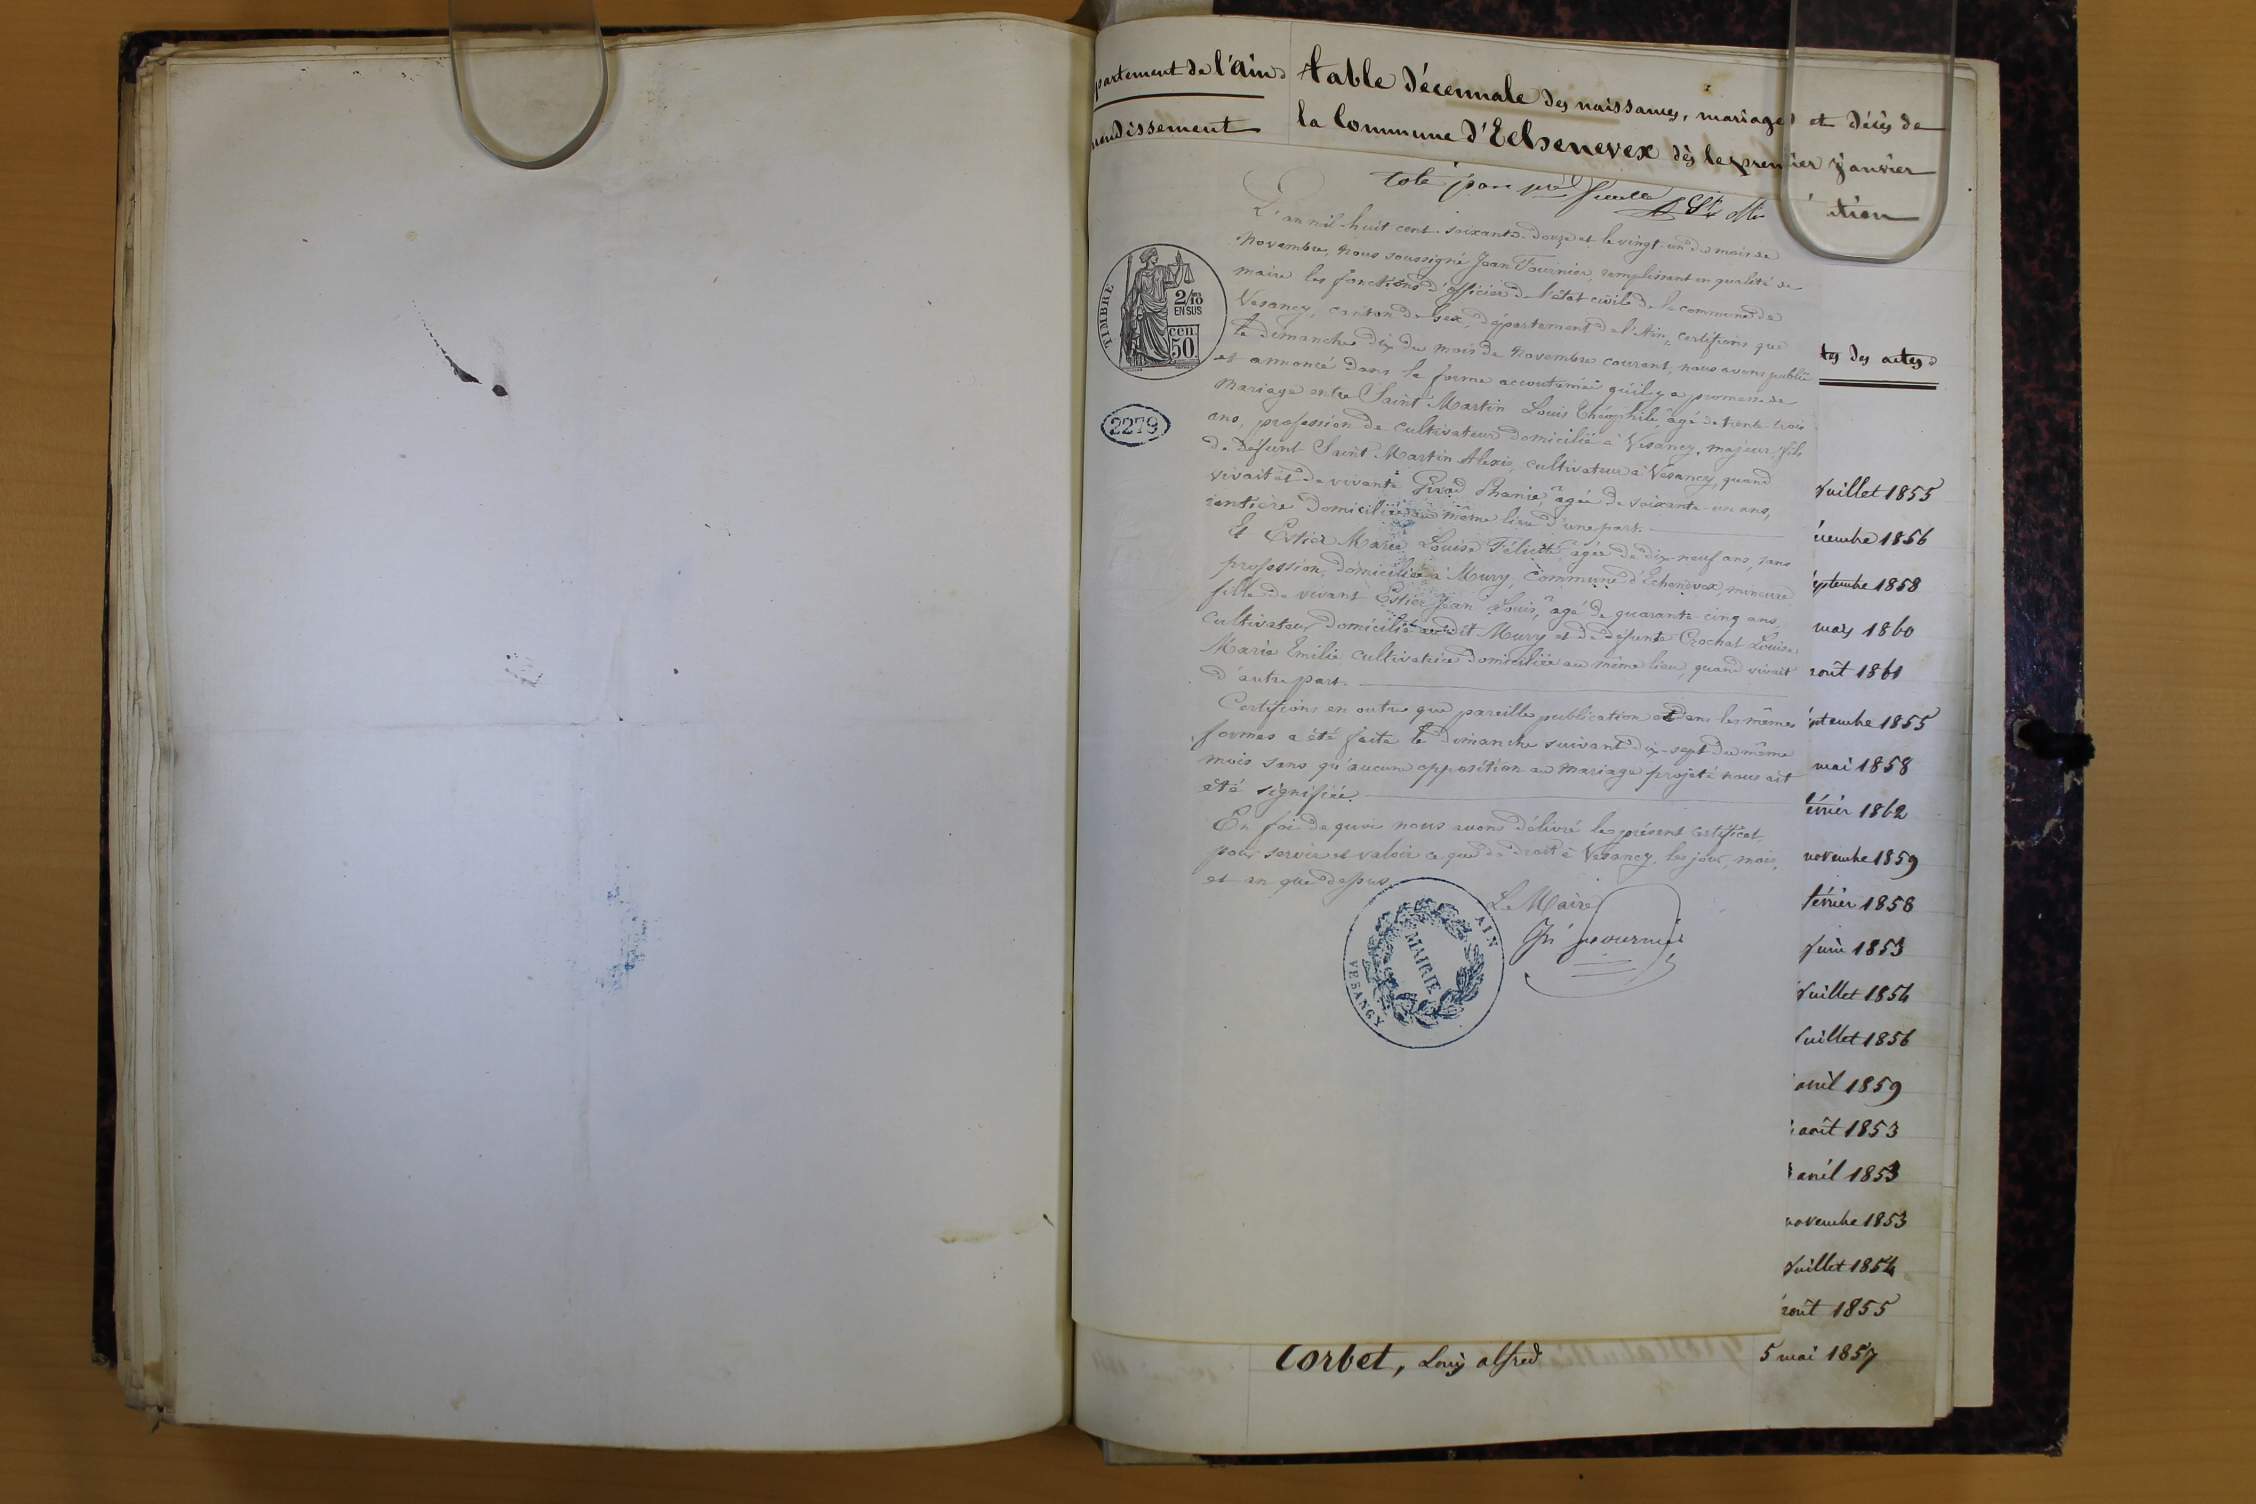 partement de l'ain
table décennale des naissances, mariages et décès de
rondissement
la Commune d'Echenevex dès le premier janvier
ition
L'an mil-huit cent-soixante-douze et le vingt-un du mois de
Novembre, nous soussigné Jean Fournier, remplissant en qualité de
maire les fonctions d'officier de l'état civil de la commune de
Vesancy, canton de Gex, département de l'Ain, certifions que
le dimanche dix du mois de Novembre courant, nous avons publié
et annoncé dans la forme accoutumée qu'il y a promesse de
mariage entre Saint Martin Louis Théophile, âgé de trente-trois
ans, profession de cultivateur domicilié à Vesancy, majeur, fils
de défunt Saint-Martin Alexis, cultivateur à Vesancy, quand
vivait et de vivante Girod Phanie, âgée de soixante-un ans,
rentière domiciliée au même lieu d'une part.
Et Estier Marie Louise Félicité, âgée de dix-neuf ans, sans
profession, domiciliée à Mury, Commune d'Echenevex, mineure
fille de vivant Estier Jean Louis, âgé de quarante-cinq ans,
Cultivateur domicilié audit Mury et de défunte Crochat Louise
Marie Emilie cultivatrice domiciliée au même lieu, quand vivait
d'autre part.
Certifions en outre que pareille publication et dans les mêmes
formes a été faite le dimanche suivant dix-sept du même
mois sans qu'aucune opposition au mariage projeté nous ait
été signifiée.
En foi de quoi nous avons délivré le présent certificat
pour servir et valoir ce que de droit à Vesancy, les jour, mois,
et an que dessus.
Le Maire
TIMBRE
2/10
EN SUS
cen.
50
2279
MAIRIE
VESANCY
AIN
tes des actes
Juillet 1855
écembre 1856
eptembre 1858
mars 1860
août 1861
eptembre 1855
mai 1858
évrier 1862
novembre 1859
février 1858
Juin 1853
Juillet 1854
Juillet 1856
avril 1859
août 1853
avril 1853
novembre 1853
Juillet 1854
août 1855
Corbet, Louis alfred
5 mai 1857